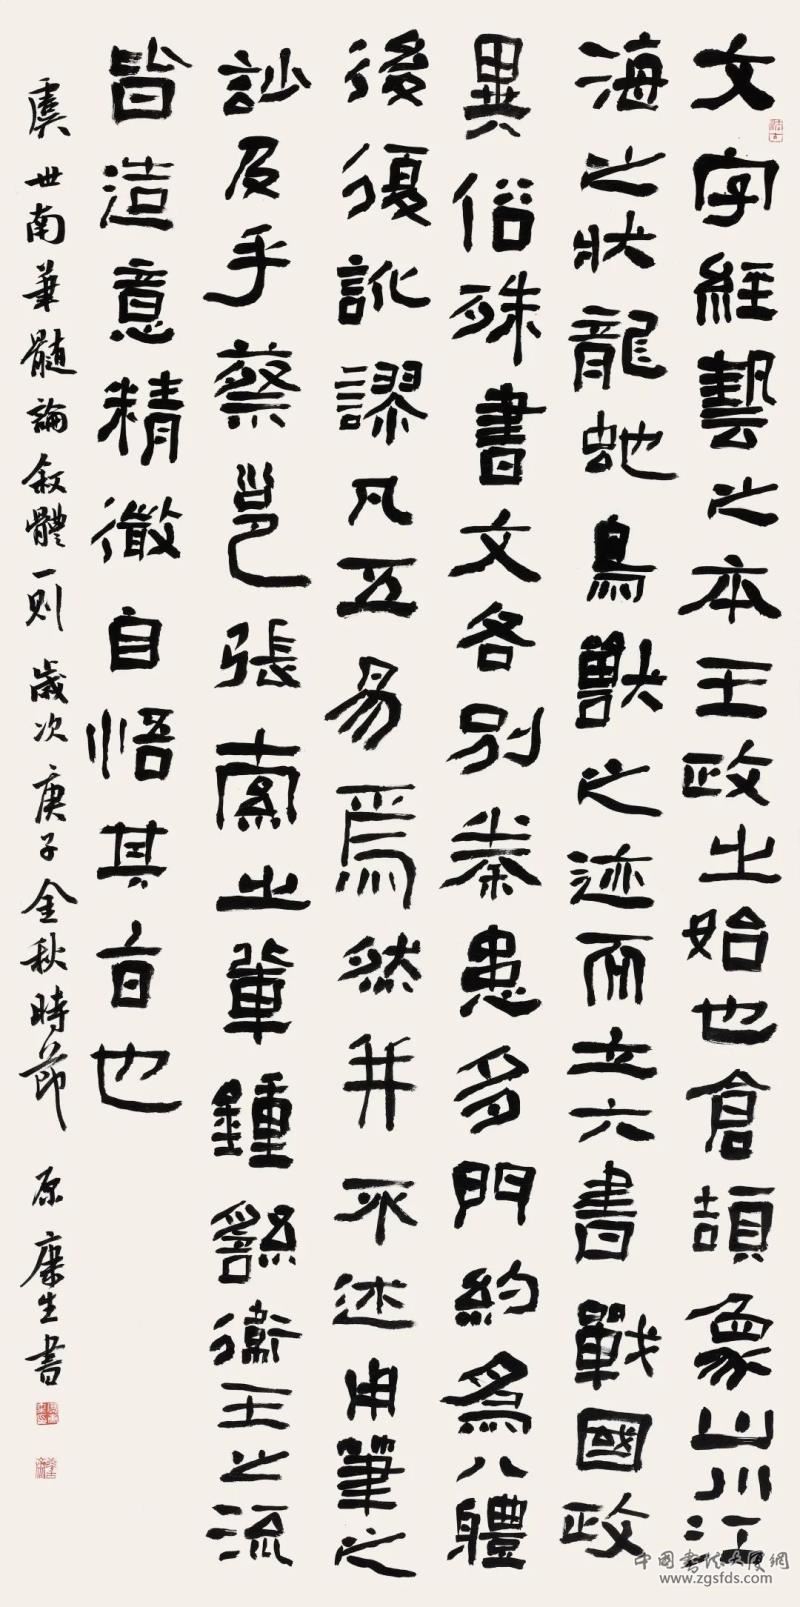 文字經藝之本王政之始也倉頡象山川江
海之狀龍虵鳥獸之迹而立六書戰國政
異俗殊書文各別秦患多門約爲八體
後復訛謬凡五易焉然并不述用筆之
訟及乎蔡邕張索之輩鍾繇衛王之流
皆造意精微自悟其旨也
虞世南筆髓論叙體一则 歲次庚子金秋時節 原康生書
中国書法大厦網
www.zgsfds.com